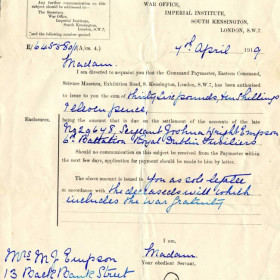 Any further communication on this
subject should be addressed to—
The Secretary,
War Office,
Imperial Institute,
London, S.W.7.
and the following number quoted
WAR OFFICE,
IMPERIAL INSTITUTE,
SOUTH KENSINGTON,
LONDON, S.W.7.
E/645580/1 (A/cs. 4.)
7th April 1919
Madam,
I am directed to acquaint you that the Command Paymaster, Eastern Command,
Science Museum, Exhibition Road, S. Kensington, London, S.W.7, has been authorised
to issue to you the sum of thirty six pounds, ten shillings
Eleven pence
Enclosures.
being the amount that is due on the settlement of the accounts of the late
Sergeant Joshua Wright Empson
6th Battalion Royal Dublin Fusiliers
Should no communication on this subject be received from the Paymaster within the
next few days, application for payment should be made to him by letter.
The above amount is issued to you as sole legatee
in accordance with the deceased's will which
includes the War Gratuity
I am,
Madam,
Your obedient Servant,
Mrs M. J. Empson
13 Back Bank Street